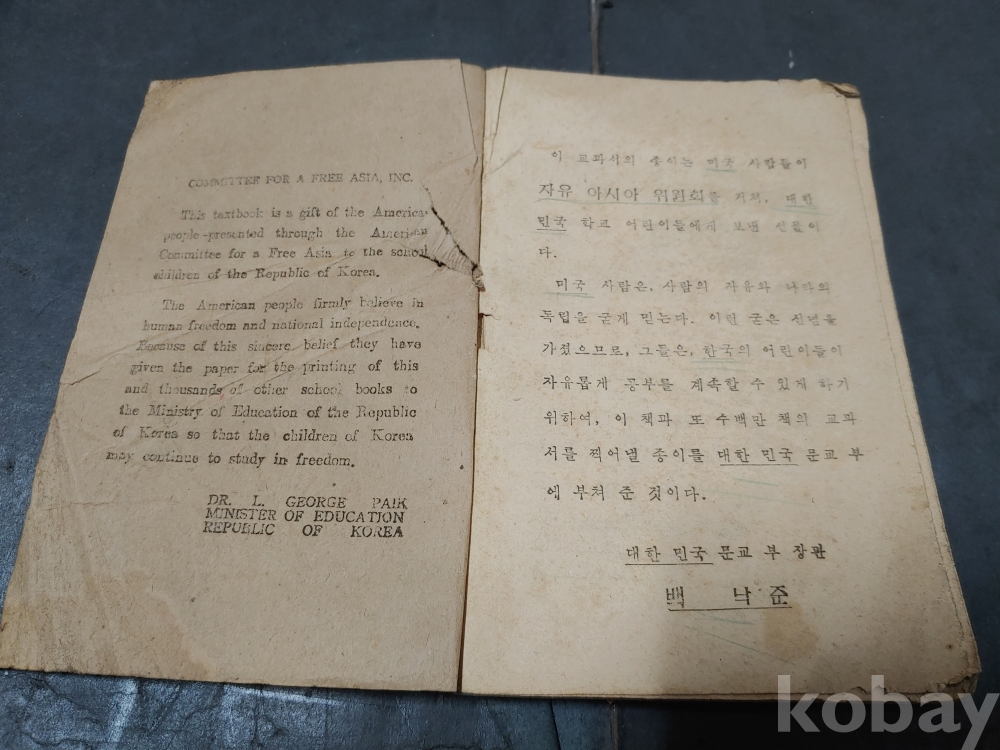 COMMITTEE FOR A FREE ASIA, INC.
This textbook is a gift of the America
people-presented through the American
Committee for a Free Asia to the school
children of the Republic of Korea.
The American people firmly believe in
human freedom and national independence.
Because of this sincere belief they have
given the paper for the printing of this
and thousands of other school books to
the Ministry of Education of the Republic
of Korea so that the children of Korea
may continue to study in freedom.
DR. L. GEORGE PAIK
MINISTER OF EDUCATION
REPUBLIC OF KOREA
이 교과서의 종이는 미국 사람들이
자유 아시아 위원회를 거쳐, 대한
민국 학교 어린이들에게 보낸 선물이
다.
미국 사람은, 사람의 자유와 나라의
독립을 굳게 믿는다. 이런 굳은 신념을
가졌으므로, 그들은, 한국의 어린이들이
자유롭게 공부를 계속할 수 있게 하기
위하여, 이 책과 또 수백만 책의 교과
서를 찍어낼 종이를 대한 민국 문교 부
에 부쳐 준 것이다.
대한 민국 문교 부 장관
백 낙 준
kobay